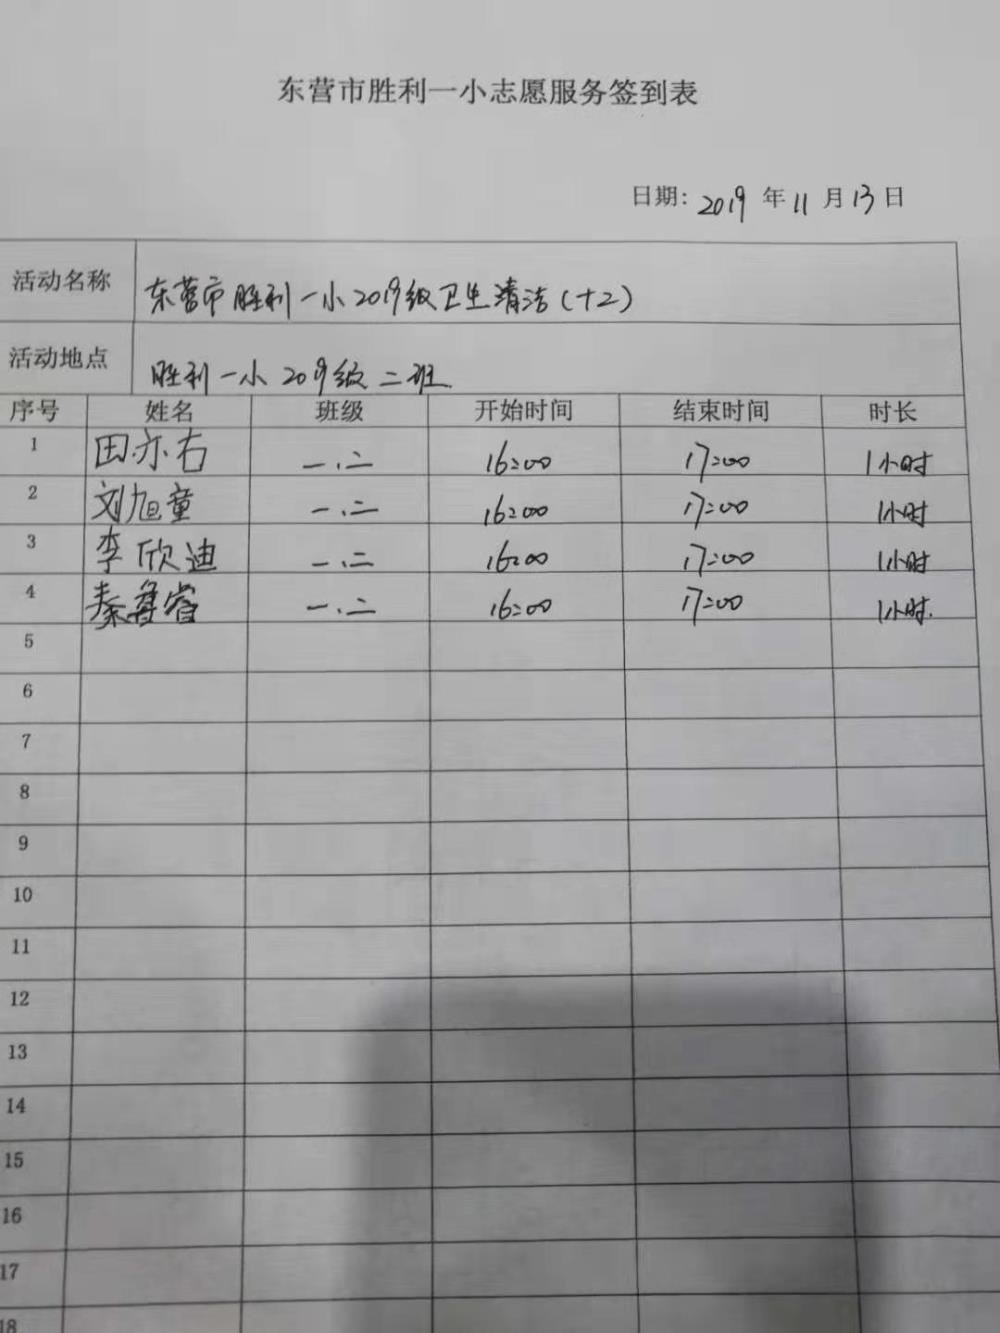 东营市胜利一小志愿服务签到表
日期: 2019 年 11 月 13 日
活动名称 东营市胜利一小2019级卫生清洁(十二)
活动地点 胜利一小 2019级 二班
序号 姓名 班级 开始时间 结束时间 时长
1 田亦右 一.二 16:00 17:00 1小时
2 刘旭童 一.二 16:00 17:00 1小时
3 李欣迪 一.二 16:00 17:00 1小时
4 秦鲁睿 一.二 16:00 17:00 1小时.
5
6
7
8
9
10
11
12
13
14
15
16
17
18